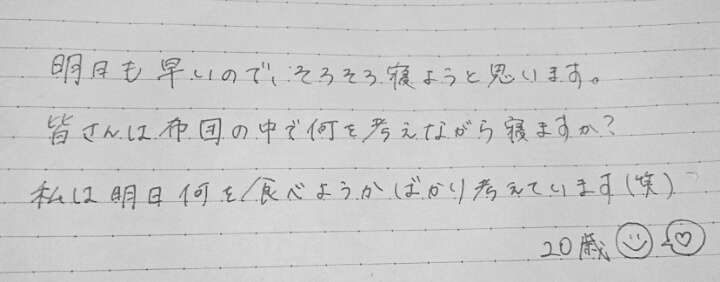 明日も早いので、そろそろ寝ようと思います。
皆さんは布団の中で何を考えながら寝ますか?
私は明日何を食べようかばかり考えています(笑)
20歳